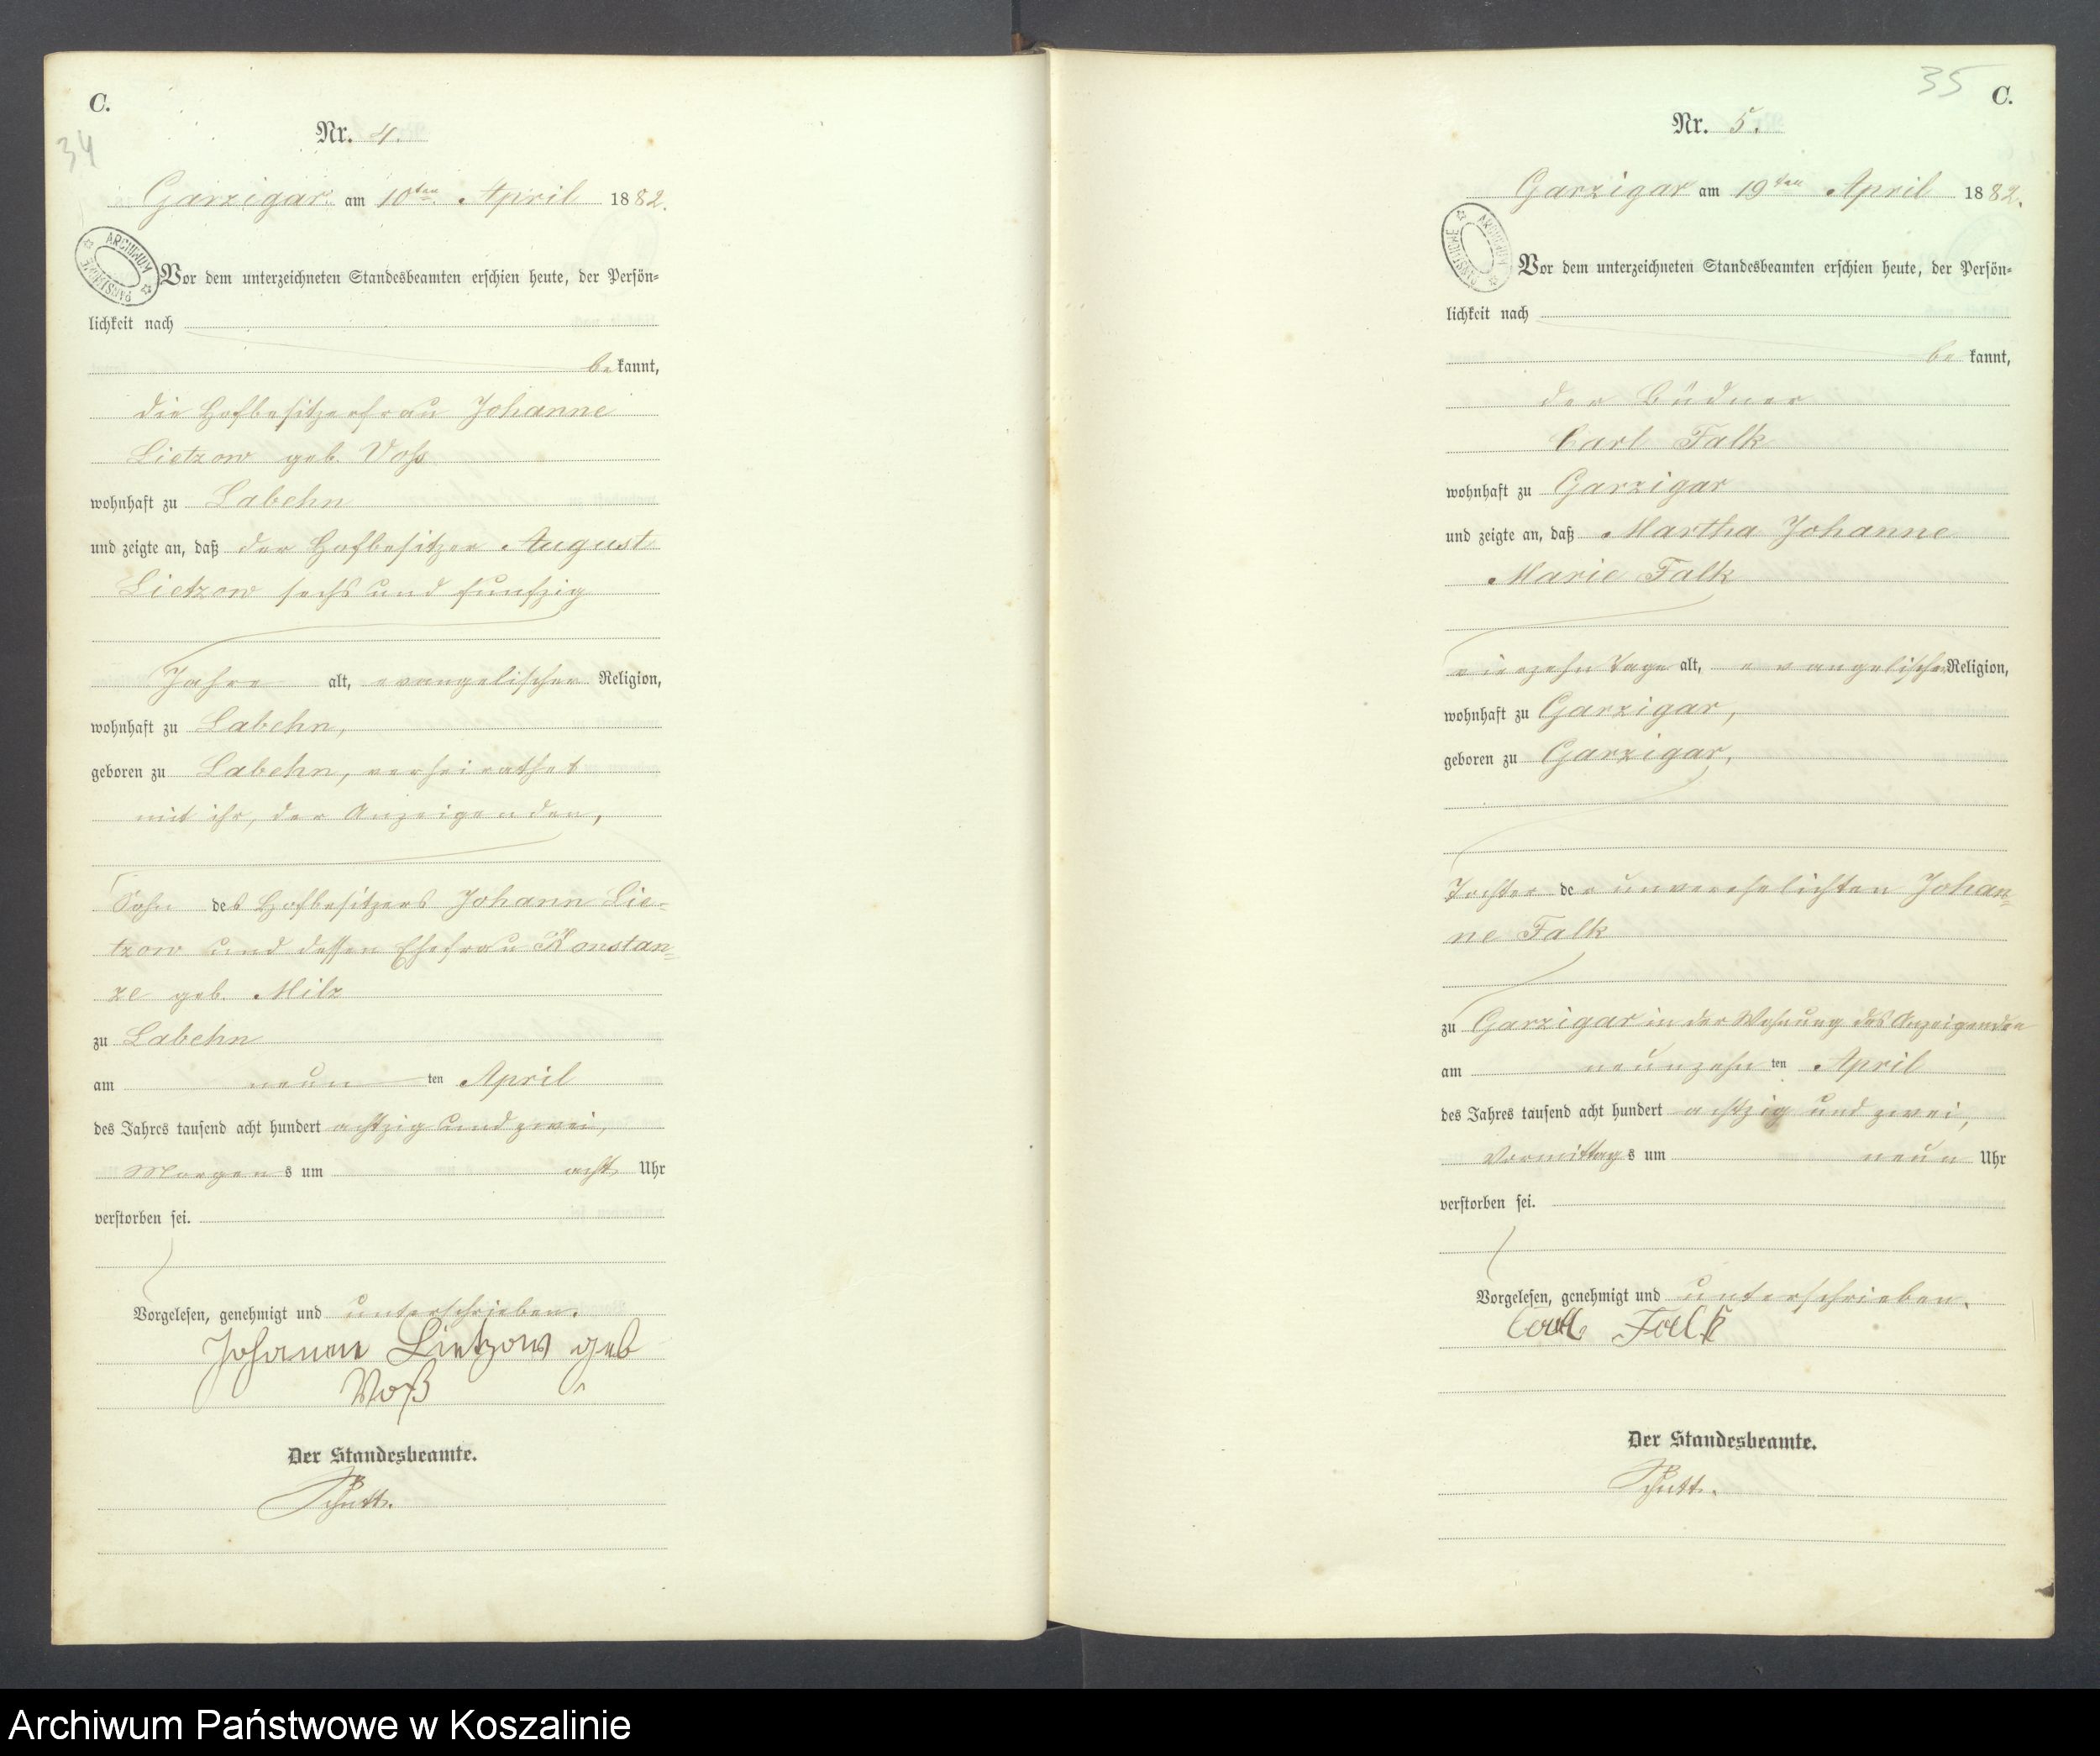 C.
34
Nr. 4.
Garzigar am 10ten April 1882.
ARCHIWUM PAŃSTWOWE
Vor dem unterzeichneten Standesbeamten erschien heute, der Persön-
lichkeit nach
bekannt,
die Hofbesitzerfrau Johanne
Lietzow geb. Voß
wohnhaft zu Labehn
und zeigte an, daß der Hofbesitzer August
Lietzow sechs und funfzig
Jahre alt, evangelischer Religion,
wohnhaft zu Labehn,
geboren zu Labehn, verheirathet
mit ihr, der Anzeigenden,
Sohn des Hofbesitzers Johann Lie-
tzow und dessen Ehefrau Konstan-
ze geb. Milz
zu Labehn
am neun ten April
des Jahres tausend acht hundert achtzig und zwei,
Morgens um acht Uhr
verstorben sei.
Vorgelesen, genehmigt und unterschrieben.
Johanne Lietzow geb
Voß
Der Standesbeamte.
35
C.
Nr. 5.
Garzigar am 19ten April 1882.
ARCHIWUM PAŃSTWOWE
Vor dem unterzeichneten Standesbeamten erschien heute, der Persön-
lichkeit nach
bekannt,
der Büdner
Carl Falk
wohnhaft zu Garzigar
und zeigte an, daß Martha Johanne
Marie Falk
vierzehn Tage alt, evangelischer Religion,
wohnhaft zu Garzigar,
geboren zu Garzigar,
Tochter der unverehelichten Johan-
ne Falk
zu Garzigar in der Wohnung des Anzeigenden
am neunzehn ten April
des Jahres tausend acht hundert achtzig und zwei,
Vormittags um neun Uhr
verstorben sei.
Vorgelesen, genehmigt und unterschrieben.
Carl Falk
Der Standesbeamte.
Archiwum Państwowe w Koszalinie